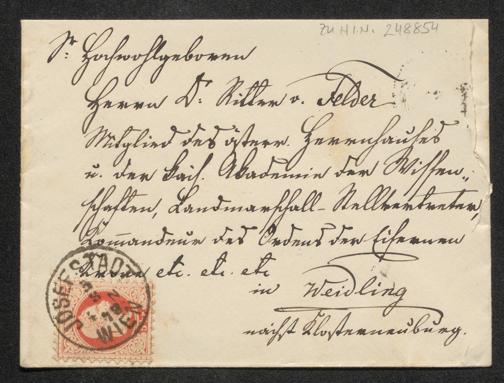 ZU H.I.N. 248854
Sr. Hochwohlgeboren
Herrn Dr. Ritter v. Felder
Mitglied des österr. Herrenhauses
u. der kais. Akademie der Wissen„
schaften, Landmarschall-Stellvertreter,
Commandeur des Ordens der Eisernen
Krone etc. etc. etc
in Weidling
nächst Klosterneuburg.
JOSEFSTADT
WIEN